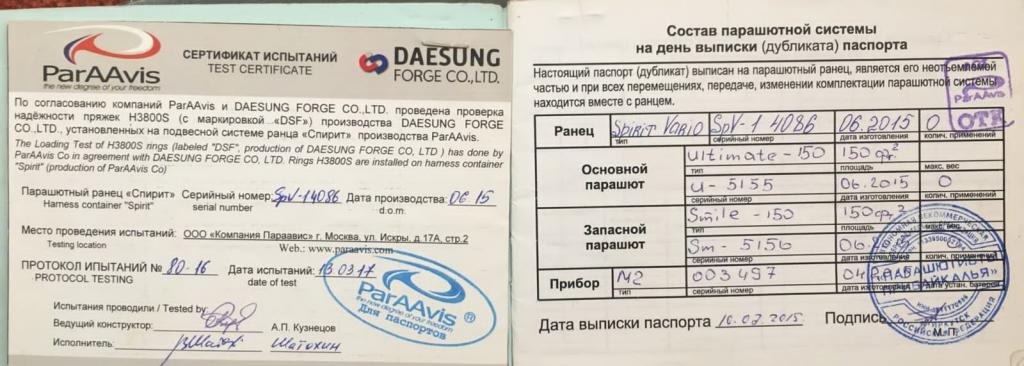 ParAAvis
the new degree of your freedom
СЕРТИФИКАТ ИСПЫТАНИЙ
TEST CERTIFICATE
DAESUNG
FORGE CO.,LTD.
По согласованию компаний ParAAvis и DAESUNG FORGE CO.,LTD. проведена проверка
надёжности пряжек H3800S (с маркировкой «DSF») производства DAESUNG FORGE
CO.,LTD., установленных на подвесной системе ранца «Спирит» производства ParAAvis.
The Loading Test of H3800S rings (labeled "DSF", production of DAESUNG FORGE CO, LTD ) has done by
ParAAvis Co in agreement with DAESUNG FORGE CO, LTD. Rings H3800S are installed on harness container
"Spirit" (production of ParAAvis Co)
Парашютный ранец «Спирит» Серийный номер SpV-14086 Дата производства: 06 15
Harness container "Spirit" serial number d.o.m.
Место проведения испытаний: ООО «Компания Параавис» г. Москва, ул. Искры, д.17А, стр.2
Testing location Web.: www.paraavis.com
ПРОТОКОЛ ИПЫТАНИЙ № 80-16 Дата испытаний: 13.03.17
PROTOCOL TESTING date of test
Испытания проводили / Tested by:
Ведущий конструктор: А.П. Кузнецов
Исполнитель: Матохин
ParAAvis
the new degree of your freedom
Для паспортов
Состав парашютной системы
на день выписки (дубликата) паспорта
Настоящий паспорт (дубликат) выписан на парашютный ранец, является его неотъемлемой
частью и при всех перемещениях, передаче, изменении комплектации парашютной системы
находится вместе с ранцем.
ParAAvis
ОТК
Ранец Spirit Vario SpV-14086 06.2015 0
тип серийный номер дата изготовления колич. применений
Основной парашют
Ultimate-150 150 фт.²
тип площадь макс. вес
U-5155 06.2015 0
серийный номер дата изготовления колич. применений
Запасной парашют
Smile-150 150 фт.²
тип площадь макс. вес
Sm-5156
серийный номер
Прибор M2 003497
тип серийный номер дата изготовления
Дата выписки паспорта 10.07.2015 Подпись
М.П.
«ПАРАШЮТИСТЫ
ПРИБАЙКАЛЬЯ»
РОССИЙСКАЯ ФЕДЕРАЦИЯ